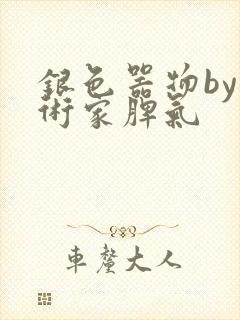 銀色器物by
術家脾氣
車釐大人